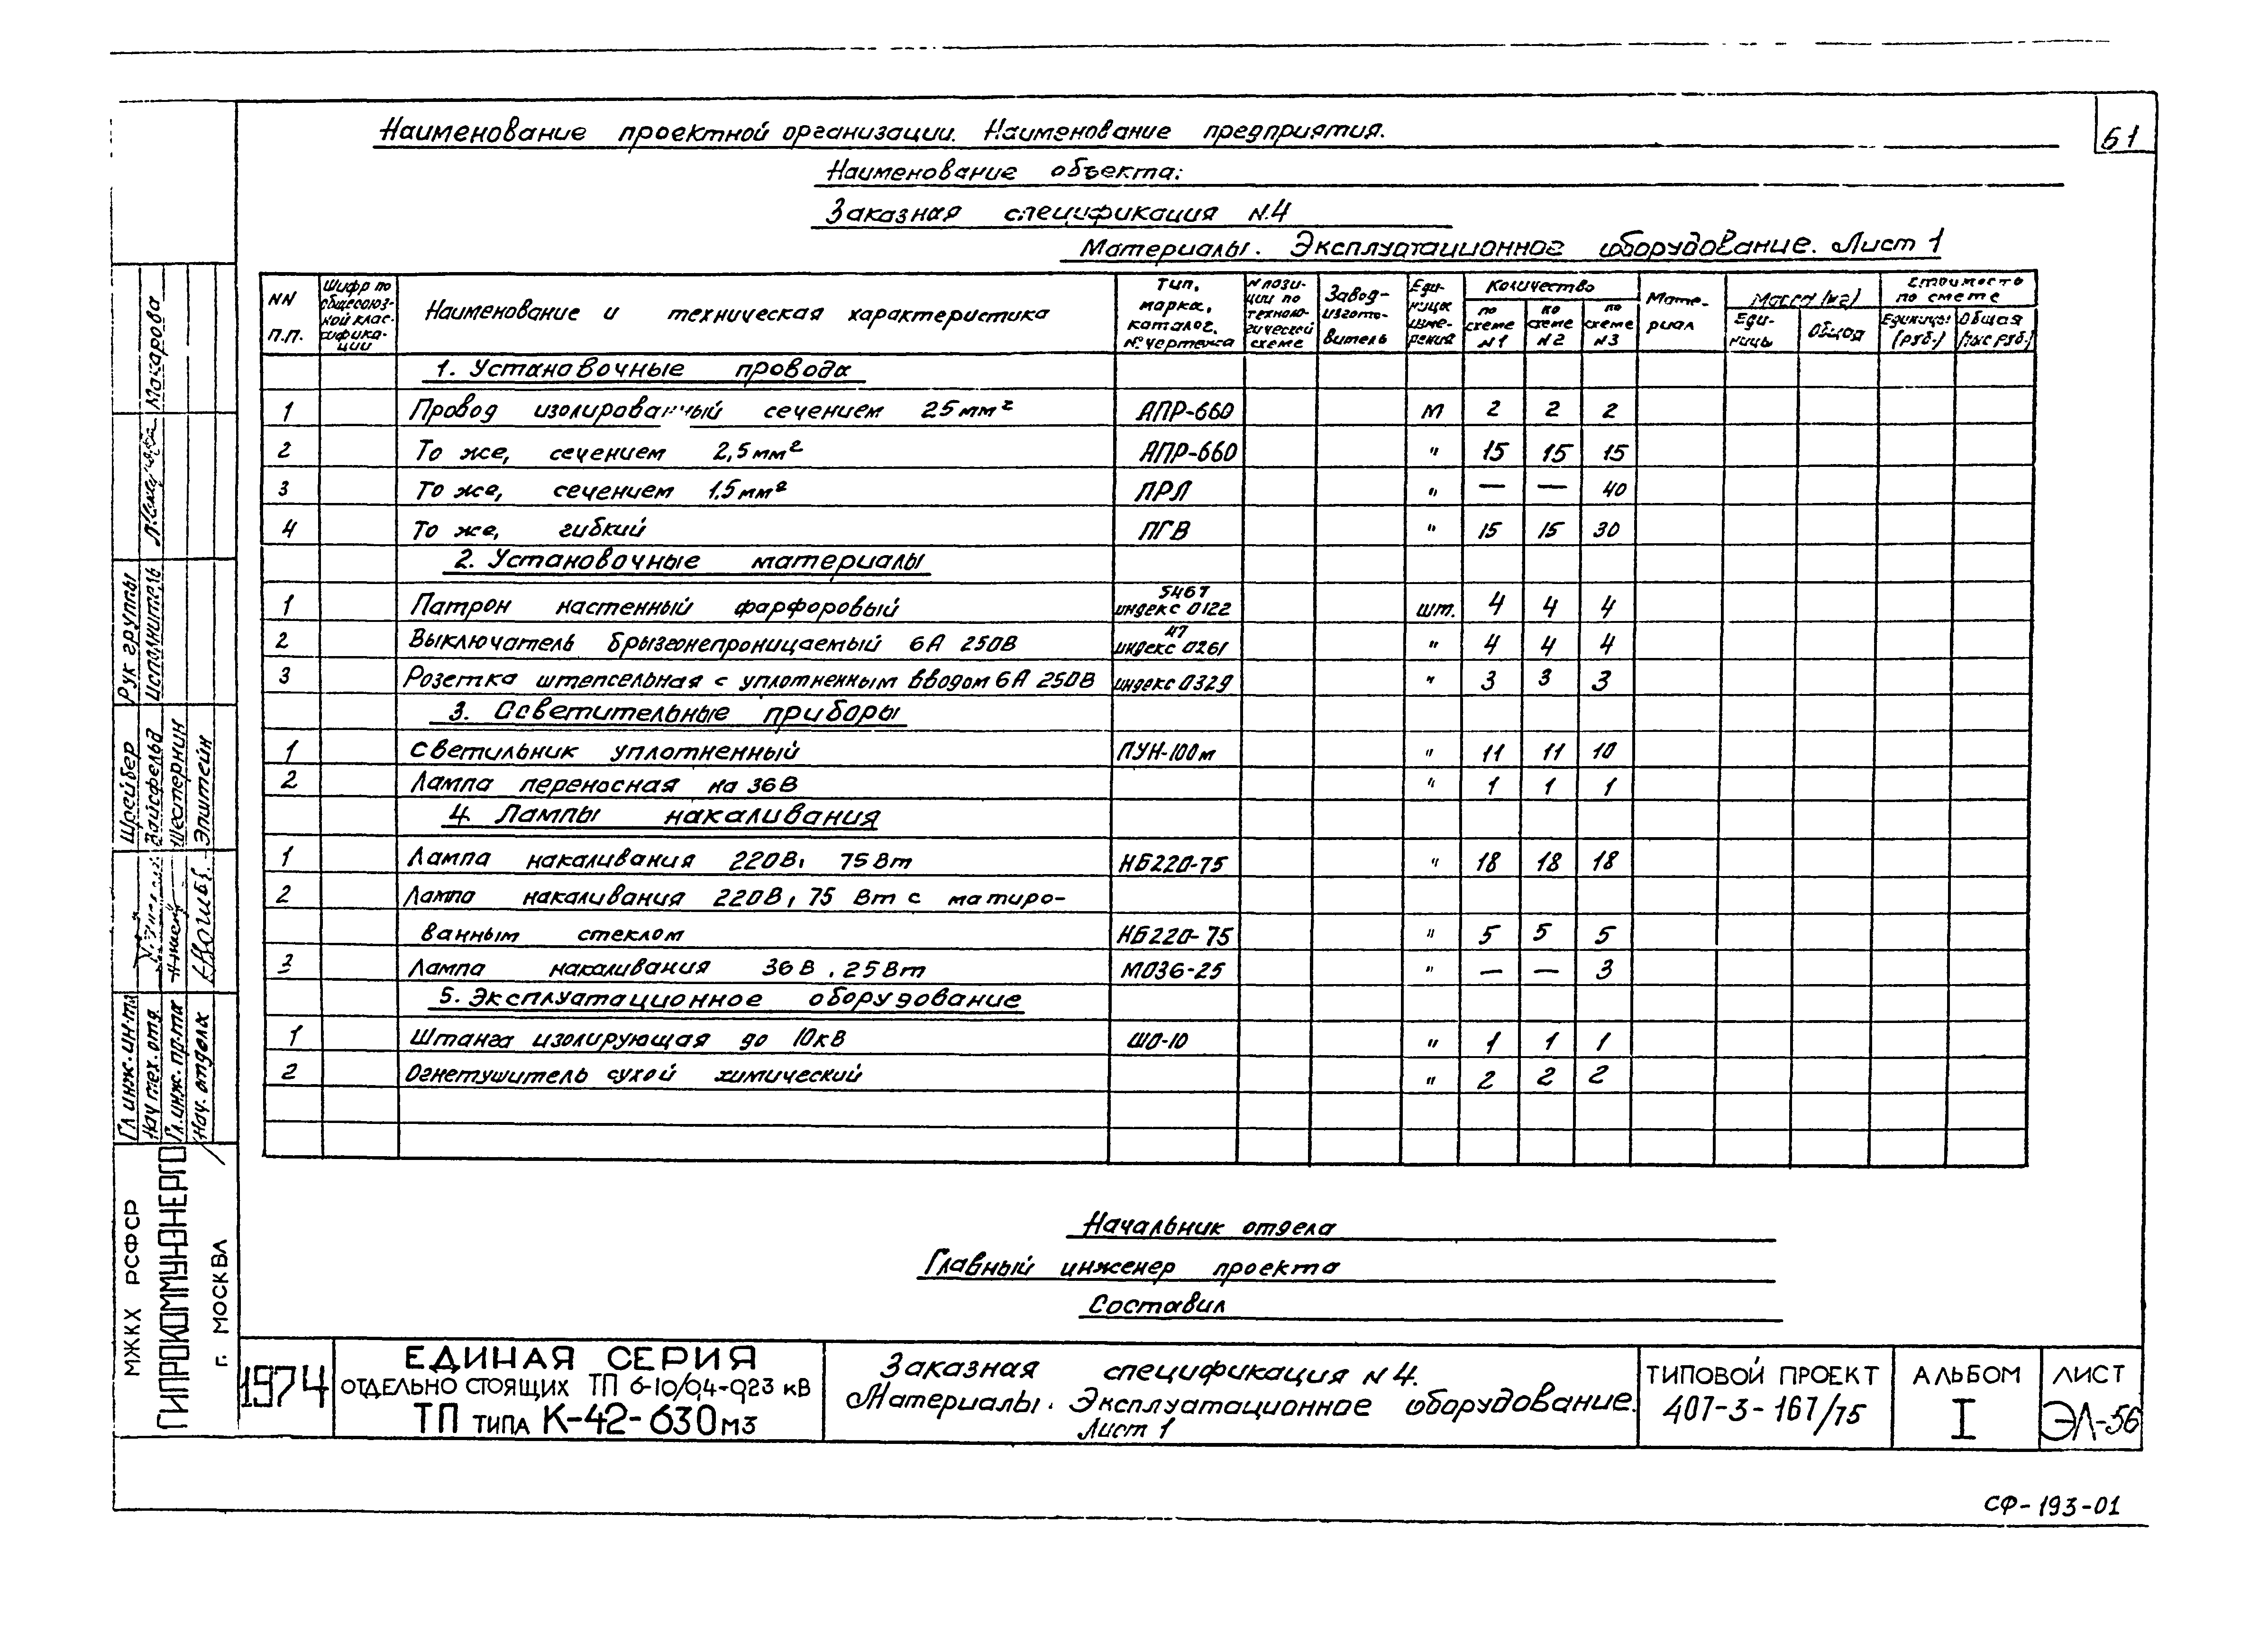 61
Наименование проектной организации. Наименование предприятия.
Наименование объекта:
Заказная спецификация №4
Материалы. Эксплуатационное оборудование. Лист 1
NN п.п.
Шифр по общесоюз-ной клас-сифика-ции
Наименование и техническая характеристика
Тип, марка, каталог, № чертежа
N пози-ции по техноло-гической схеме
Завод-изгото-витель
Еди-ница изме-рения
Количество
по схеме N1
по схеме N2
по схеме N3
Мате-риал
Масса (кг)
Еди-ницы
Общая
Стоимость по смете
Единицы (руб.)
Общая (тыс руб.)
1. Установочные провода
1 Провод изолированный сечением 25 мм² АПР-660 М 2 2 2
2 То же, сечением 2,5 мм² АПР-660 " 15 15 15
3 То же, сечением 1.5 мм² ПРЛ " — — 40
4 То же, гибкий ПГВ " 15 15 30
2. Установочные материалы
1 Патрон настенный фарфоровый 5467 индекс 0122 шт. 4 4 4
2 Выключатель брызгонепроницаемый 6А 250В 47 индекс 0261 " 4 4 4
3 Розетка штепсельная с уплотненным вводом 6А 250В индекс 0329 " 3 3 3
3. Осветительные приборы
1 Светильник уплотненный ПУН-100м " 11 11 10
2 Лампа переносная на 36В " 1 1 1
4. Лампы накаливания
1 Лампа накаливания 220В, 75Вт НБ220-75 " 18 18 18
2 Лампа накаливания 220В, 75 Вт с матиро-
ванным стеклом НБ220-75 " 5 5 5
3 Лампа накаливания 36В, 25Вт МО36-25 " — — 3
5. Эксплуатационное оборудование
1 Штанга изолирующая до 10кВ ШО-10 " 1 1 1
2 Огнетушитель сухой химический " 2 2 2
Начальник отдела
Главный инженер проекта
Составил
МЖКХ РСФСР
ГИПРОКОММУНЭНЕРГО
г. МОСКВА
Гл инж. ин-та
Нач тех. отд.
Гл. инж. пр-та
Нач. отдела
Шрейбер
Вайсфельд
Шестернин
Эпштейн
Рук группы
Исполнитель
Макарова
1974
ЕДИНАЯ СЕРИЯ
ОТДЕЛЬНО СТОЯЩИХ ТП 6-10/0,4-0,23 кВ
ТП ТИПА К-42-630м3
Заказная спецификация N4.
Материалы. Эксплуатационное оборудование.
Лист 1
ТИПОВОЙ ПРОЕКТ
407-3-167/75
АЛЬБОМ
I
ЛИСТ
ЭЛ-56
СФ-193-01